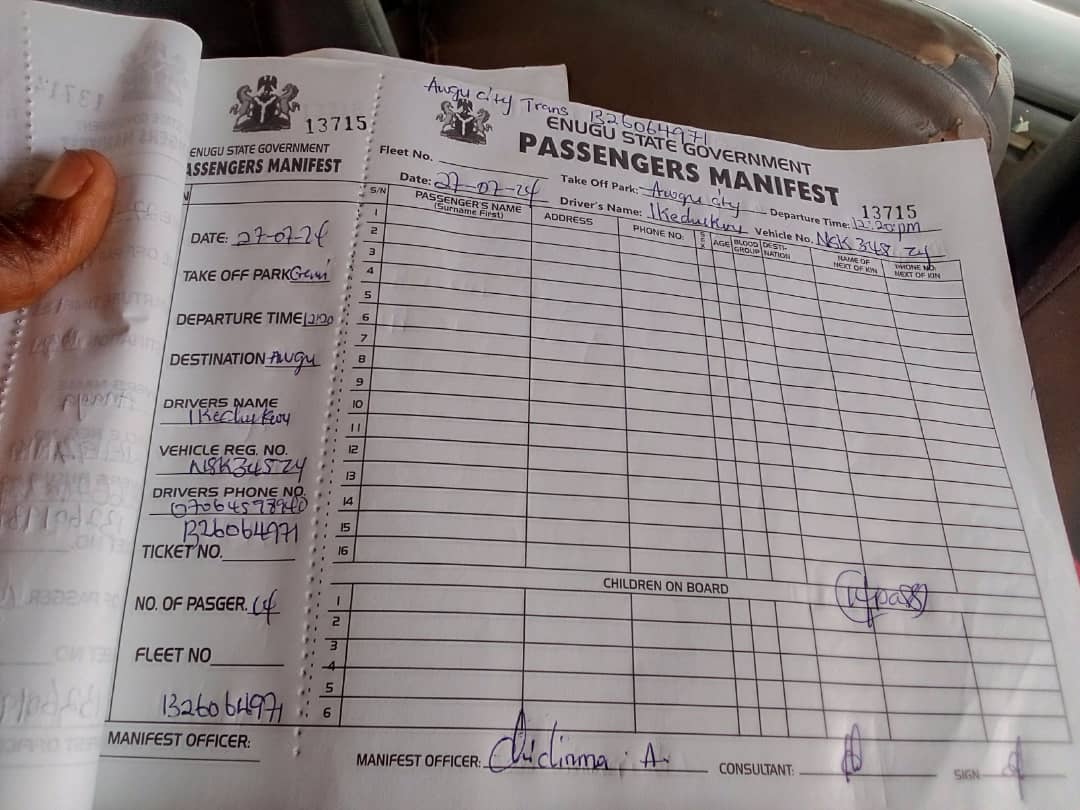 13715
ENUGU STATE GOVERNMENT
ASSENGERS MANIFEST
DATE: 27-07-24
TAKE OFF PARK
DEPARTURE TIME 12:20
DESTINATION Awgu
DRIVERS NAME
Ikechukwu
VEHICLE REG. NO.
DRIVERS PHONE NO.
1326064971
TICKET NO.
NO. OF PASGER. 14
FLEET NO
1326064971
MANIFEST OFFICER:
Awgu city Trans 1326064971
ENUGU STATE GOVERNMENT
PASSENGERS MANIFEST
13715
Fleet No.
Date: 27-07-24 Take Off Park: Awgu city Departure Time: 12:20pm
Driver's Name: Ikechukwu Vehicle No. NSK 348 ZY
S/N PASSENGER'S NAME (Surname First) ADDRESS PHONE NO. SEX AGE BLOOD GROUP DESTI-NATION NAME OF NEXT OF KIN PHONE NO. NEXT OF KIN
1
2
3
4
5
6
7
8
9
10
11
12
13
14
15
16
CHILDREN ON BOARD
14pass
1
2
3
4
5
6
MANIFEST OFFICER: Chidinma . A. CONSULTANT: SIGN